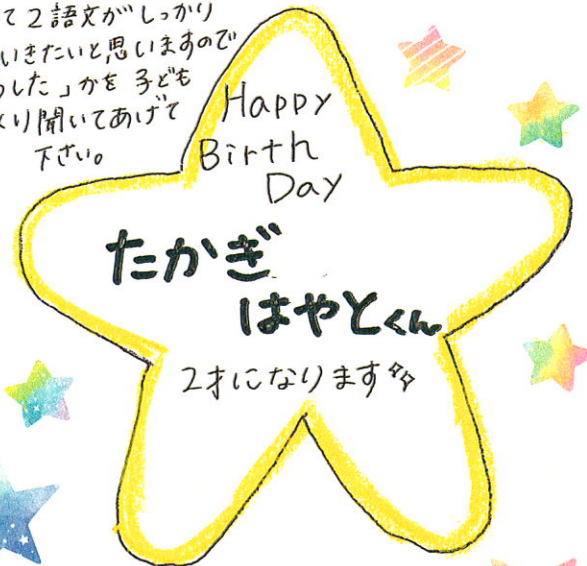 て2語文がしっかり
いきたいと思いますので
した」かを 子ども
くり聞いてあげて
下さい。
Happy
Birth
Day
たかぎ
はやとくん
2才になります